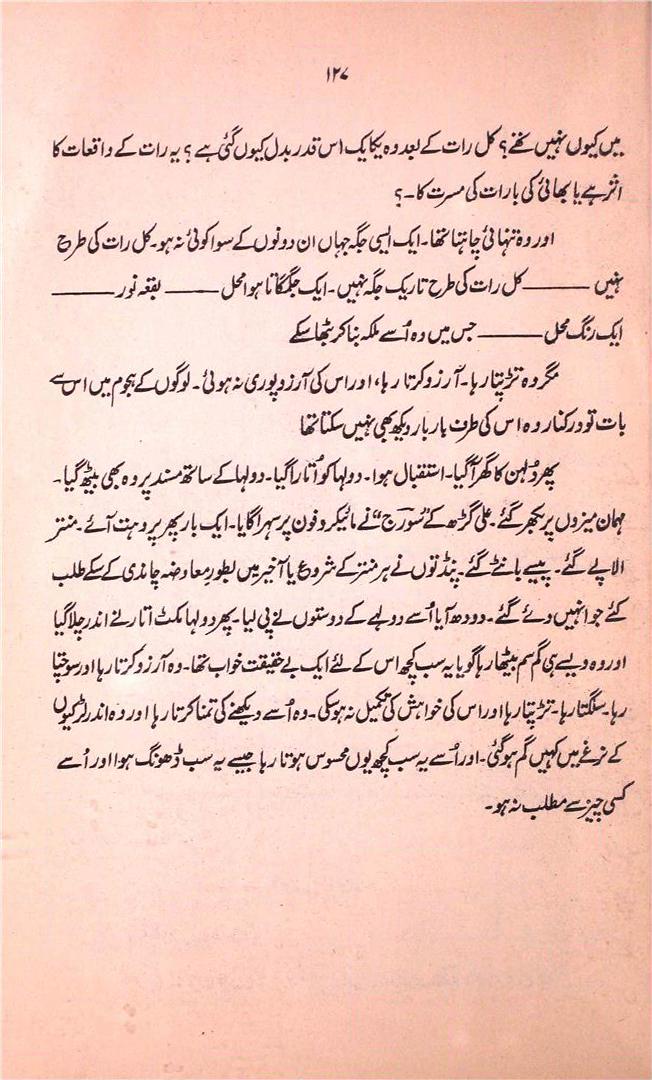 ۱۲۷
میں کیوں نہیں تھے؟ کل رات کے بعد وہ یکایک اس قدر بدل کیوں گئی ہے؟ یہ رات کے واقعات کا
اثر ہے یا بھائی کی بارات کی مسرت کا۔؟
اور وہ تنہائی چاہتا تھا۔ ایک ایسی جگہ جہاں ان دونوں کے سوا کوئی نہ ہو۔ کل رات کی طرح
نہیں ——— کل رات کی طرح تاریک جگہ نہیں۔ ایک جگمگاتا ہوا محل ——— بقعہ نور ———
ایک رنگ محل ——— جس میں وہ اُسے ملکہ بنا کر بٹھا سکے
مگر وہ تڑپتا رہا۔ آرزو کرتا رہا، اور اس کی آرزو پوری نہ ہوئی۔ لوگوں کے ہجوم میں اس سے
بات تو درکنار وہ اس کی طرف بار بار دیکھ بھی نہیں سکتا تھا
پھر دُلہن کا گھر آگیا۔ استقبال ہوا۔ دولہا کو اُتارا گیا۔ دولہا کے ساتھ مسند پر وہ بھی بیٹھ گیا۔
مہمان میزوں پر بکھر گئے۔ علی گڑھ کے "سُورج" نے مائیکروفون پر سہرا گایا۔ ایک بار پھر پروہت آئے۔ منتر
الاپے گئے۔ پیسے بانٹے گئے۔ پنڈتوں نے ہر منتر کے شروع یا آخیر میں بطورِ معاوضہ چاندی کے سکے طلب
کئے جو انہیں دئے گئے۔ دودھ آیا اُسے دولہے کے دوستوں نے پی لیا۔ پھر دولہا مکٹ اتارنے اندر چلا گیا
اور وہ ویسے ہی گم سم بیٹھا رہا گویا یہ سب کچھ اس کے لئے ایک بے حقیقت خواب تھا۔ وہ آرزو کرتا رہا اور سوچتا
رہا۔ سلگتا رہا۔ تڑپتا رہا اور اس کی خواہش کی تکمیل نہ ہو سکی۔ وہ اُسے دیکھنے کی تمنا کرتا رہا اور وہ اندر لڑکیوں
کے نرغے میں کہیں گم ہو گئی۔ اور اُسے یہ سب کچھ یوں محسوس ہوتا رہا جیسے یہ سب ڈھونگ ہو اور اُسے
کسی چیز سے مطلب نہ ہو۔